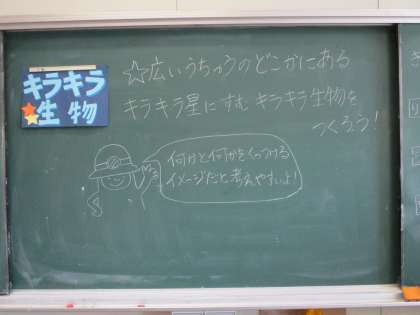 キラキラ
生物
☆広いうちゅうのどこかにある
キラキラ星にすむキラキラ生物を
つくろう!
何かと何かをくっつける
イメージだと考えやすいよ!